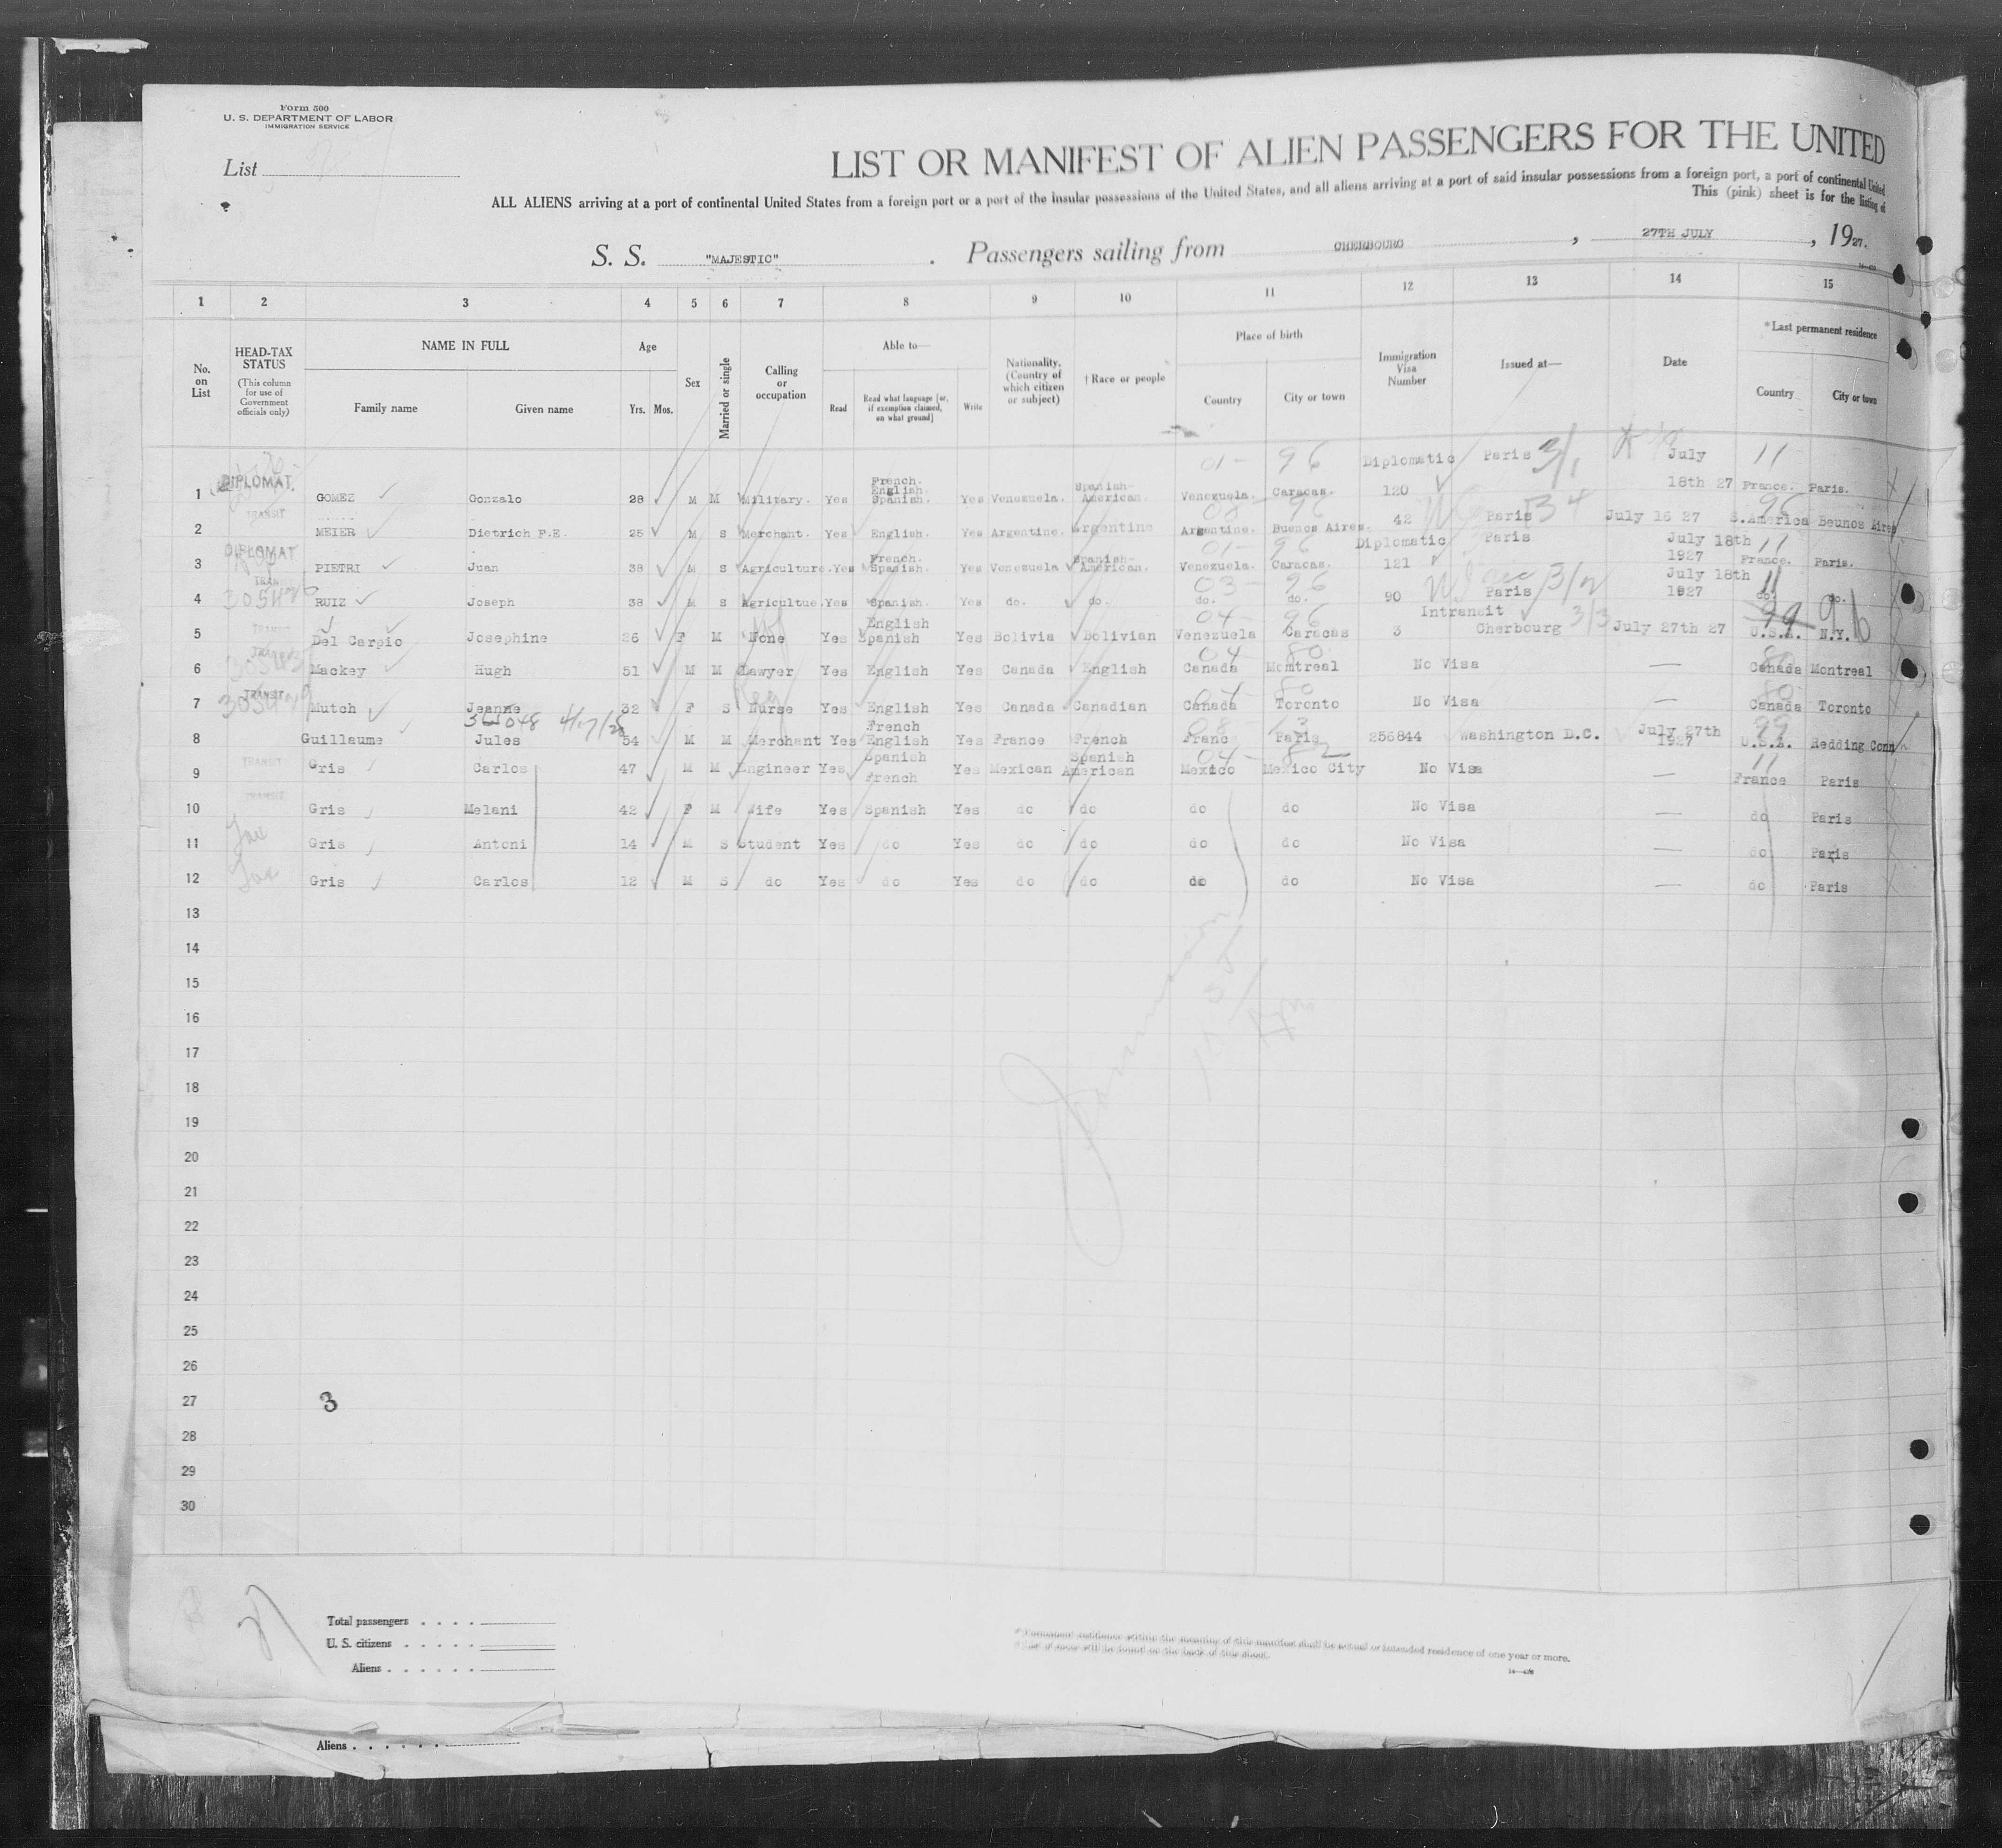 Form 500
U. S. DEPARTMENT OF LABOR
IMMIGRATION SERVICE
List
LIST OR MANIFEST OF ALIEN PASSENGERS FOR THE UNITED
ALL ALIENS arriving at a port of continental United States from a foreign port or a port of the insular possessions of the United States, and all aliens arriving at a port of said insular possessions from a foreign port, a port of continental United
This (pink) sheet is for the listing of
S. S. "MAJESTIC" . Passengers sailing from CHERBOURG , 27TH JULY , 1927.
1 2 3 4 5 6 7 8 9 10 11 12 13 14 15
No. on List
HEAD-TAX STATUS (This column for use of Government officials only)
NAME IN FULL
Family name Given name
Age
Yrs. Mos.
Sex
Married or single
Calling or occupation
Able to—
Read
Read what language [or, if exemption claimed, on what ground]
Write
Nationality. (Country of which citizen or subject)
†Race or people
Place of birth
Country City or town
Immigration Visa Number
Issued at—
Date
*Last permanent residence
Country City or town
01- 96 3/1 11
1 DIPLOMAT. GOMEZ Gonzalo 28 M M Military. Yes French. English. Spanish. Yes Venezuela. Spanish-American. Venezuela. Caracas. Diplomatic 120 Paris July 18th 27 France. Paris.
96 34 96
2 TRANSIT MEIER Dietrich F.E. 25 M S Merchant. Yes English. Yes Argentine. Argentine Argentine. Buenos Aires. 42 Paris July 16 27 S.America Beunos Aires
01- 96 11
3 DIPLOMAT PIETRI Juan 38 M S Agriculture. Yes French. Spanish. Yes Venezuela Spanish-American. Venezuela. Caracas. Diplomatic 121 Paris July 18th 1927 France. Paris.
03- 96 3/2 11
4 TRANSIT RUIZ Joseph 38 M S Agricultue. Yes Spanish. Yes do. do. do. do. 90 Paris July 18th 1927 do. do.
04- 96 3/3 99 96
5 TRANSIT Del Carpio Josephine 26 F M None Yes English Spanish Yes Bolivia Bolivian Venezuela Caracas Intransit 3 Cherbourg July 27th 27 U.S.A. N.Y.
04 80 80
6 Mackey Hugh 51 M M Lawyer Yes English Yes Canada English Canada Montreal No Visa — Canada Montreal
80 80
7 TRANSIT Mutch Jeanne 32 F S Nurse Yes English Yes Canada Canadian Canada Toronto No Visa — Canada Toronto
4/17/28
99
8 Guillaume Jules 54 M M Merchant Yes French English Yes France French Franc Paris 256844 Washington D.C. July 27th 1927 U.S.A. Redding Conn
04- 82 11
9 TRANSIT Gris Carlos 47 M M Engineer Yes Spanish French Yes Mexican Spanish American Mexico Mexico City No Visa — France Paris
10 TRANSIT Gris Melani 42 F M Wife Yes Spanish Yes do do do do No Visa — do Paris
11 Gris Antoni 14 M S Student Yes do Yes do do do do No Visa — do Paris
12 Gris Carlos 12 M S do Yes do Yes do do do do No Visa — do Paris
13
14
15
16
17
18
19
20
21
22
23
24
25
26
27 3
28
29
30
Total passengers . . . .
U. S. citizens . . . . .
Aliens . . . . . .
*Permanent residence within the meaning of this manifest shall be actual or intended residence of one year or more.
† List of races will be found on the back of this sheet.
Aliens . . . . . .